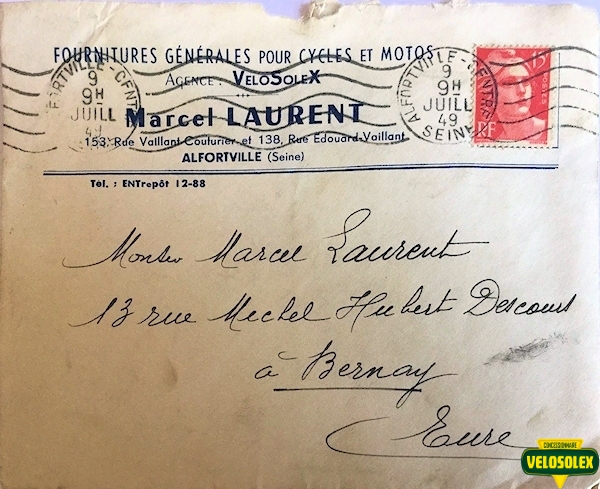 FOURNITURES GÉNÉRALES POUR CYCLES ET MOTOS
AGENCE : VÉLOSOLEX
Marcel LAURENT
153, Rue Vaillant-Couturier et 138, Rue Edouard-Vaillant
ALFORTVILLE (Seine)
Tél. : ENTrepôt 12-88
ALFORTVILLE-CENTRE
9
9H
JUILL
49
ALFORTVILLE-CENTRE
9
9H
JUILL
49
SEINE
15F
POSTES
RF
Marcel Laurent
13 rue Michel Hubert Descours
à Bernay
Eure
CONCESSIONNAIRE
VELOSOLEX